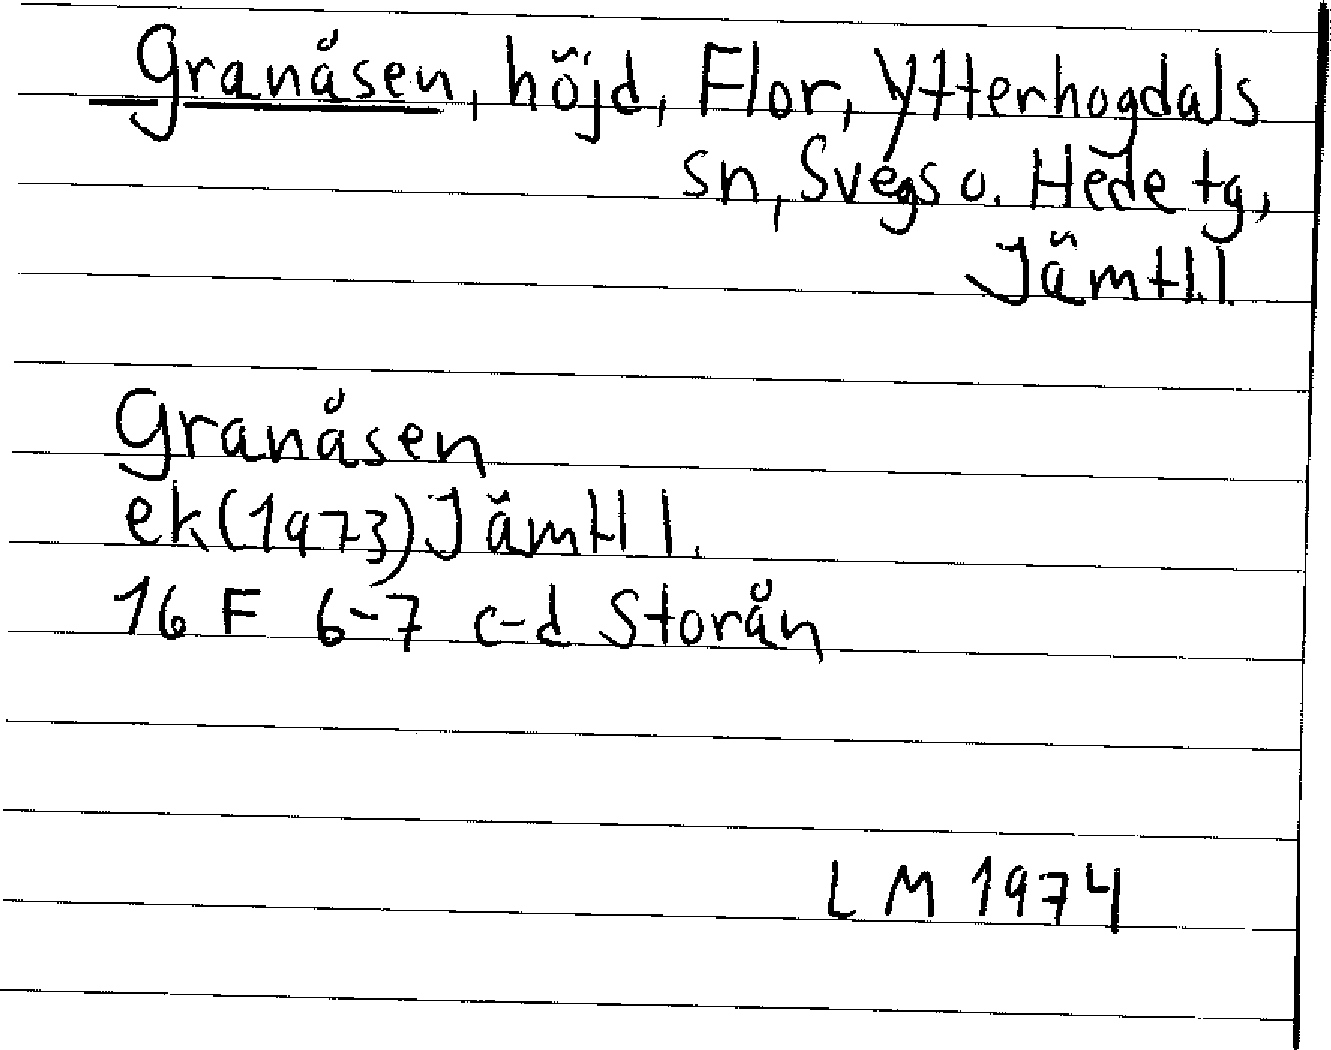 Granåsen, höjd, Flor, Ytterhogdals
sn, Svegs o. Hede tg,
Jämtl.l.
Granåsen
ek (1973) Jämtl l.
16 F 6-7 c-d Storån
LM 1974